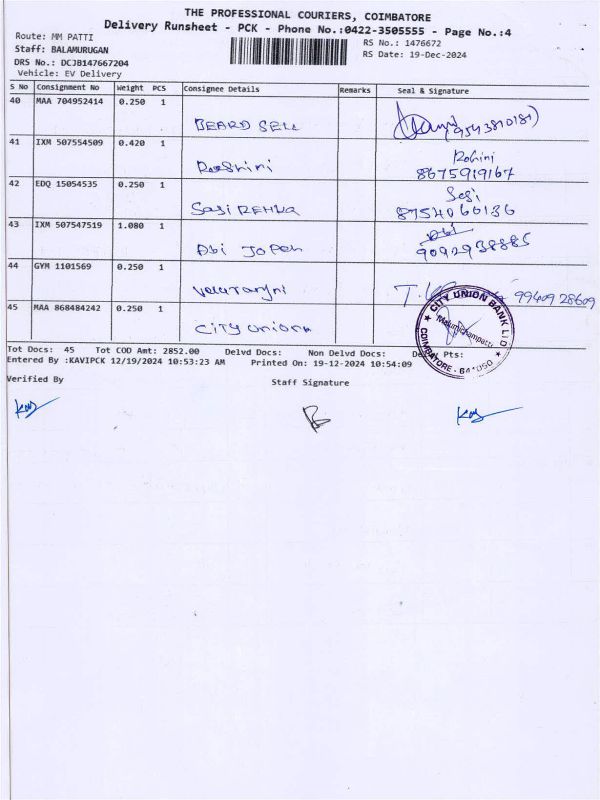 THE PROFESSIONAL COURIERS, COIMBATORE
Delivery Runsheet - PCK - Phone No.:0422-3505555 - Page No.:4
Route: MM PATTI
Staff: BALAMURUGAN
DRS No.: DCJB147667204
Vehicle: EV Delivery
RS No.: 1476672
RS Date: 19-Dec-2024
S No Consignment No Weight PCS Consignee Details Remarks Seal & Signature
40 MAA 704952414 0.250 1
BEARD SELL
41 IXM 507554509 0.420 1
Roshini Rohini
8675919167
42 EDQ 15054535 0.250 1 Sasi
SASI REKHA 8754066136
43 IXM 507547519 1.080 1 Abi
Abi 9092938885
44 GYM 1101569 0.250 1
99409 28609
45 MAA 868484242 0.250 1
CITY UNION
CITY UNION BANK LTD
COIMBATORE
Tot Docs: 45 Tot COD Amt: 2852.00 Delvd Docs: Non Delvd Docs: Pts:
Entered By :KAVIPCK 12/19/2024 10:53:23 AM Printed On: 19-12-2024 10:54:09
Verified By Staff Signature